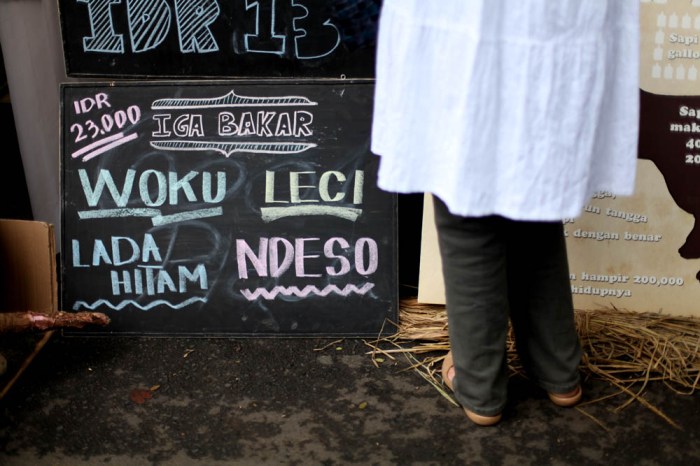 IDR 13
IDR
23.000
IGA BAKAR
WOKU
LECI
LADA
HITAM
NDESO
Sapi
gallo
Sap
mak
40
20
tangga
dengan benar
hampir 200,000
hidupnya